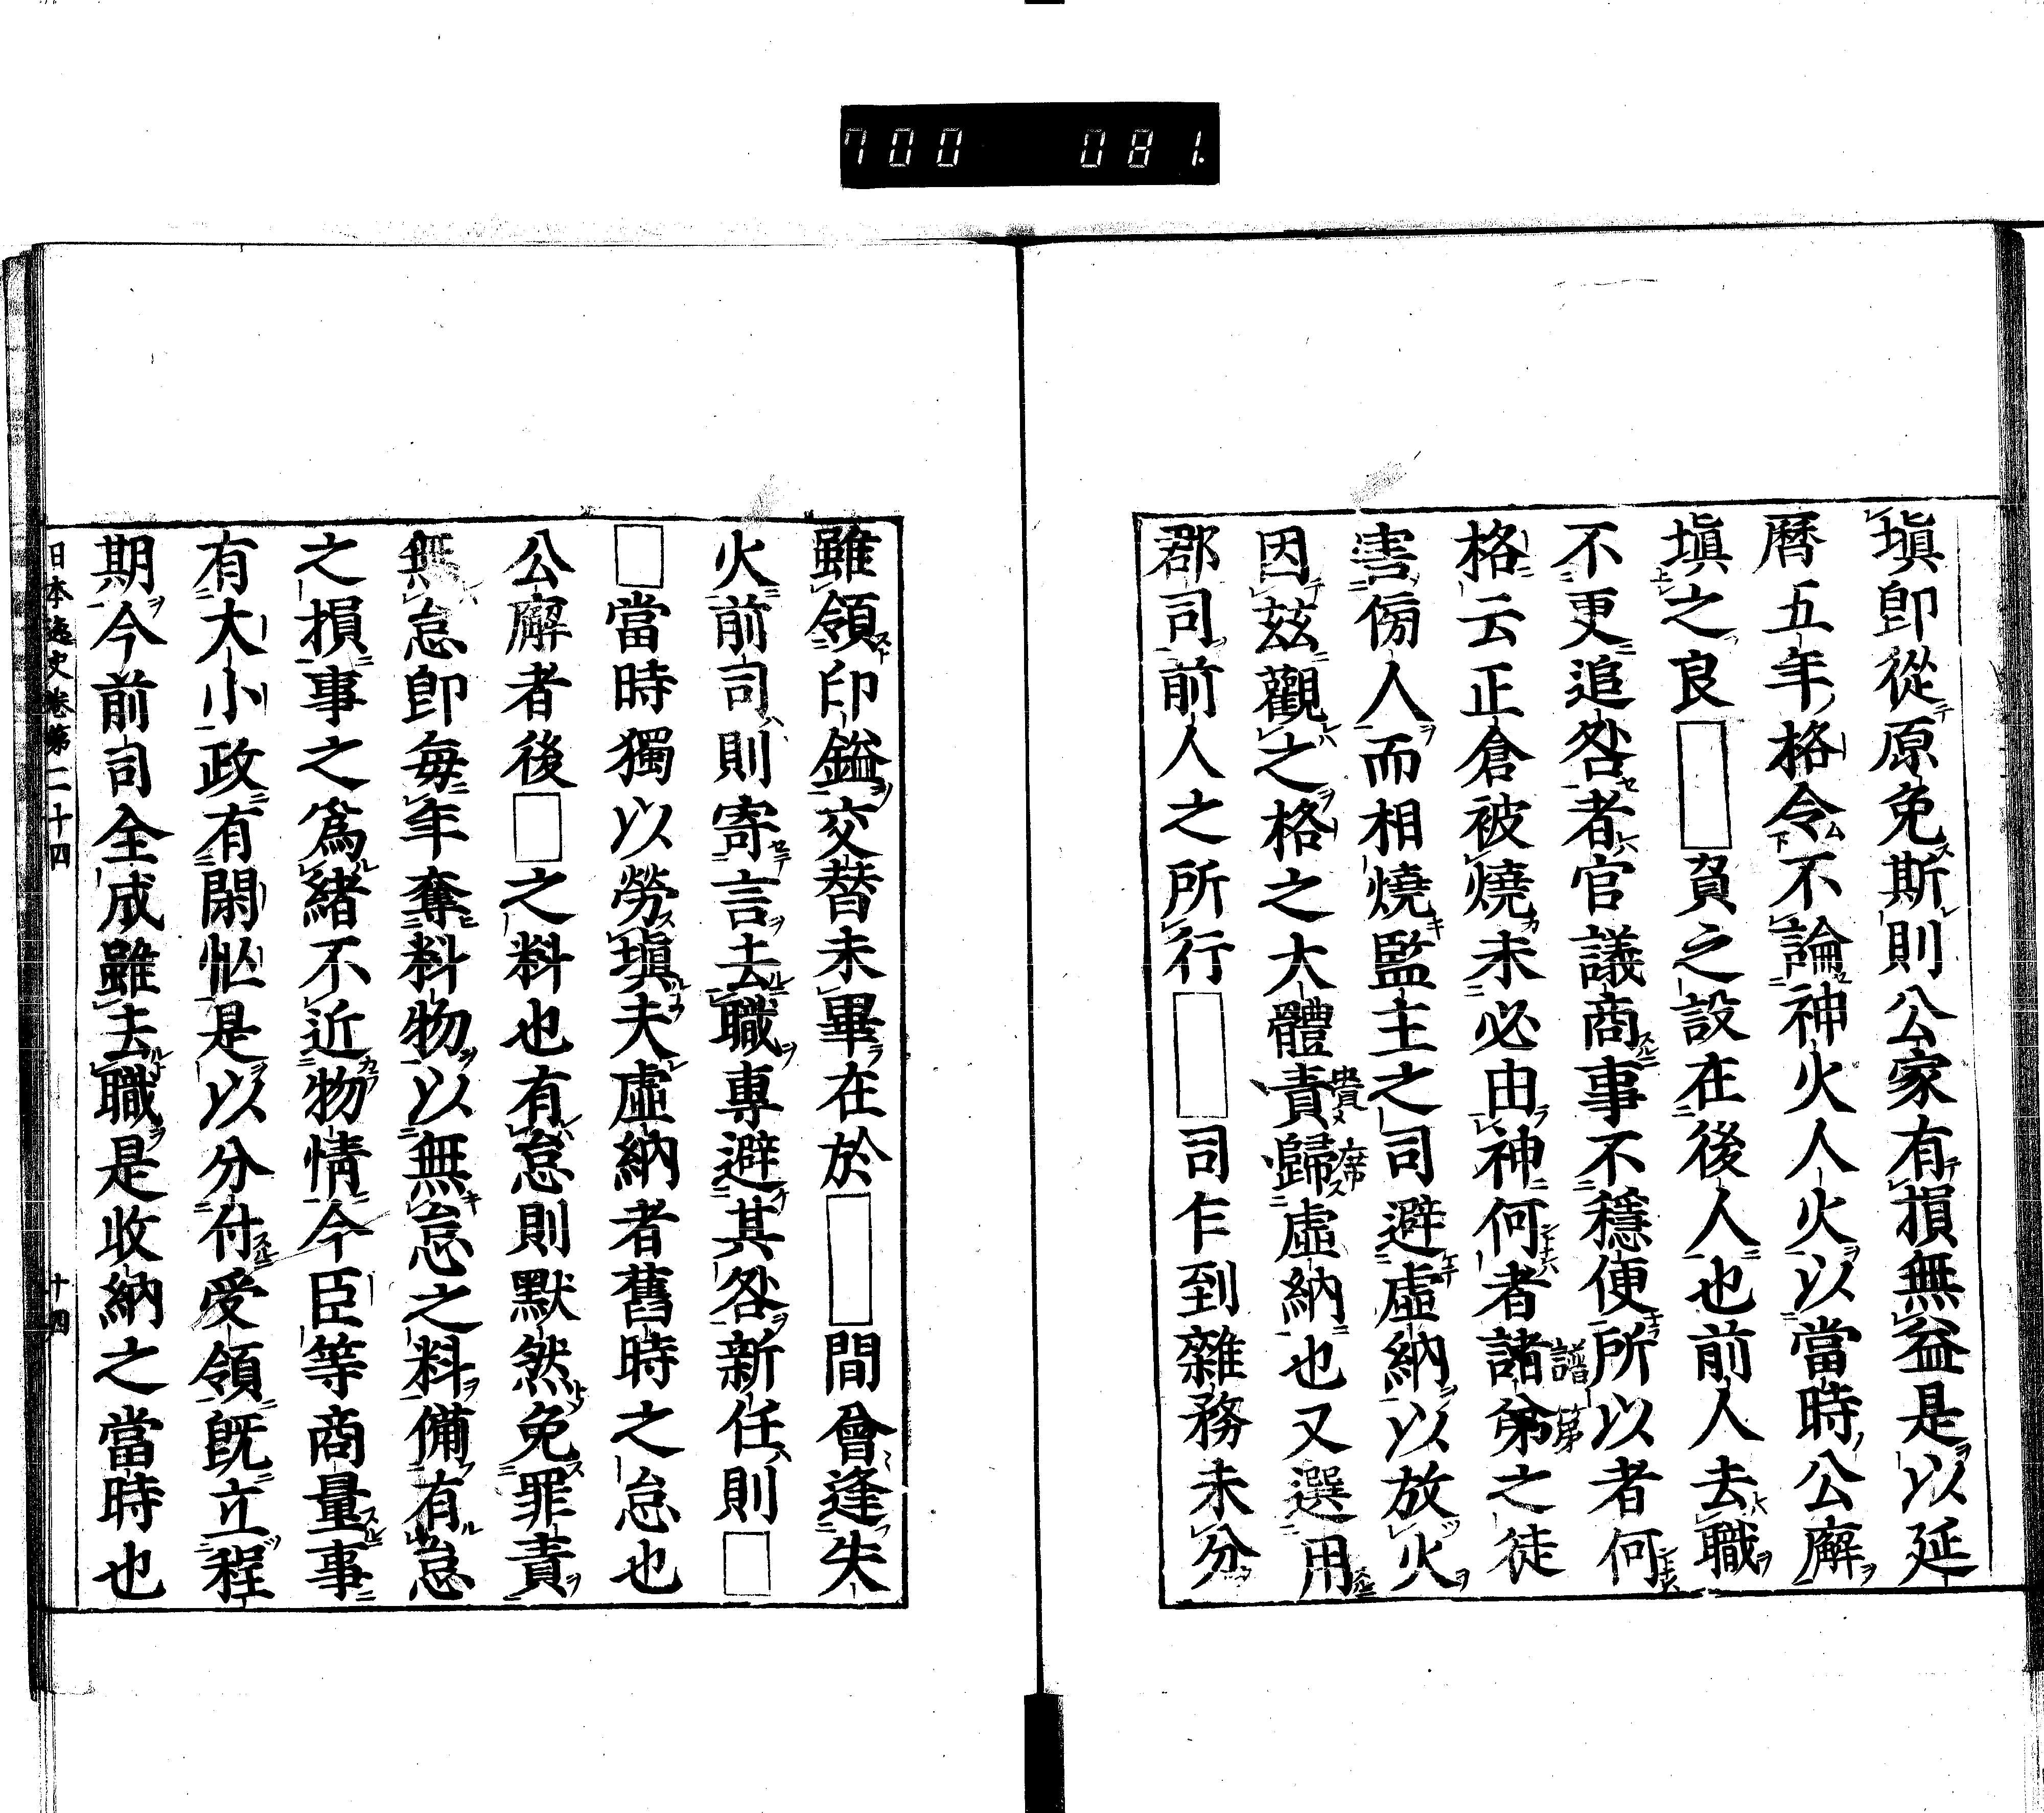 700 081
塡卽從原免斯則公家有損無益是以延
曆五年格令不論神火人火以當時公廨
塡之良□負之設在後人也前人去職
不更追咎者官議商事不穩便所以者何
格云正倉被燒未必由神何者諸弟之徒
害傍人而相燒監主之司避虛納以放火
因玆觀之格之大體責歸虛納也又選用
郡司前人之所行□司乍到雜務未分
雖領印鎰交替未畢在於□間會逢失
火前司則寄言去職專避其咎新任則□
□當時獨以勞塡夫虛納者舊時之怠也
公廨者後□之料也有怠則默然免罪責
無怠卽每年奪料物以無怠之料備有怠
之損事之爲緖不近物情今臣等商量事
有大小政有閑忙是以分付受領旣立程
期今前司全成雖去職是收納之當時也
日本逸史卷第二十四 十四